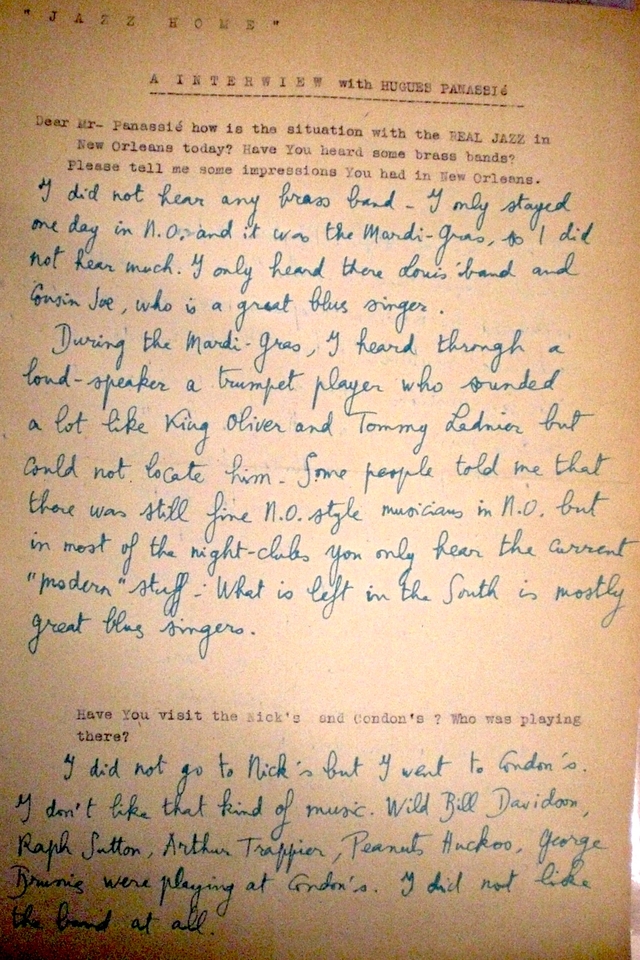 " J A Z Z   H O M E "
A I N T E R W I E W with HUGUES PANASSIé
Dear Mr- Panassié how is the situation with the REAL JAZZ in
New Orleans today? Have You heard some brass bands?
Please tell me some impressions You had in New Orleans.
I did not hear any brass band - I only stayed
one day in N.O. and it was the Mardi-Gras, so I did
not hear much. I only heard there Louis' band and
Cousin Joe, who is a great blues singer.
During the Mardi-Gras, I heard through a
loud-speaker a trumpet player who sounded
a lot like King Oliver and Tommy Ladnier but
could not locate him. Some people told me that
there was still fine N.O. style musicians in N.O. but
in most of the night-clubs you only hear the current
"modern" stuff - What is left in the South is mostly
great blues singers.
Have You visit the Nick's and Condon's ? Who was playing
there?
I did not go to Nick's but I went to Condon's.
I don't like that kind of music. Wild Bill Davidson,
Raph Sutton, Arthur Trappier, Peanuts Huckoo, George
Brunis were playing at Condon's. I did not like
the band at all.